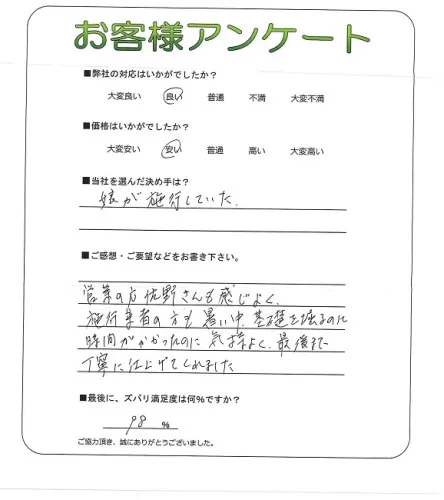 お客様アンケート
■弊社の対応はいかがでしたか？
大変良い 良い 普通 不満 大変不満
■価格はいかがでしたか？
大変安い 安い 普通 高い 大変高い
■当社を選んだ決め手は？
娘が施行していた.
■ご感想・ご要望などをお書き下さい。
営業の方佐野さんも感じよく、
施行業者の方も暑い中、基礎を掘るのに
時間がかかったのに気持よく、最後まで
丁寧に仕上げてくれました
■最後に、ズバリ満足度は何％ですか？
98 %
ご協力頂き、誠にありがとうございました。